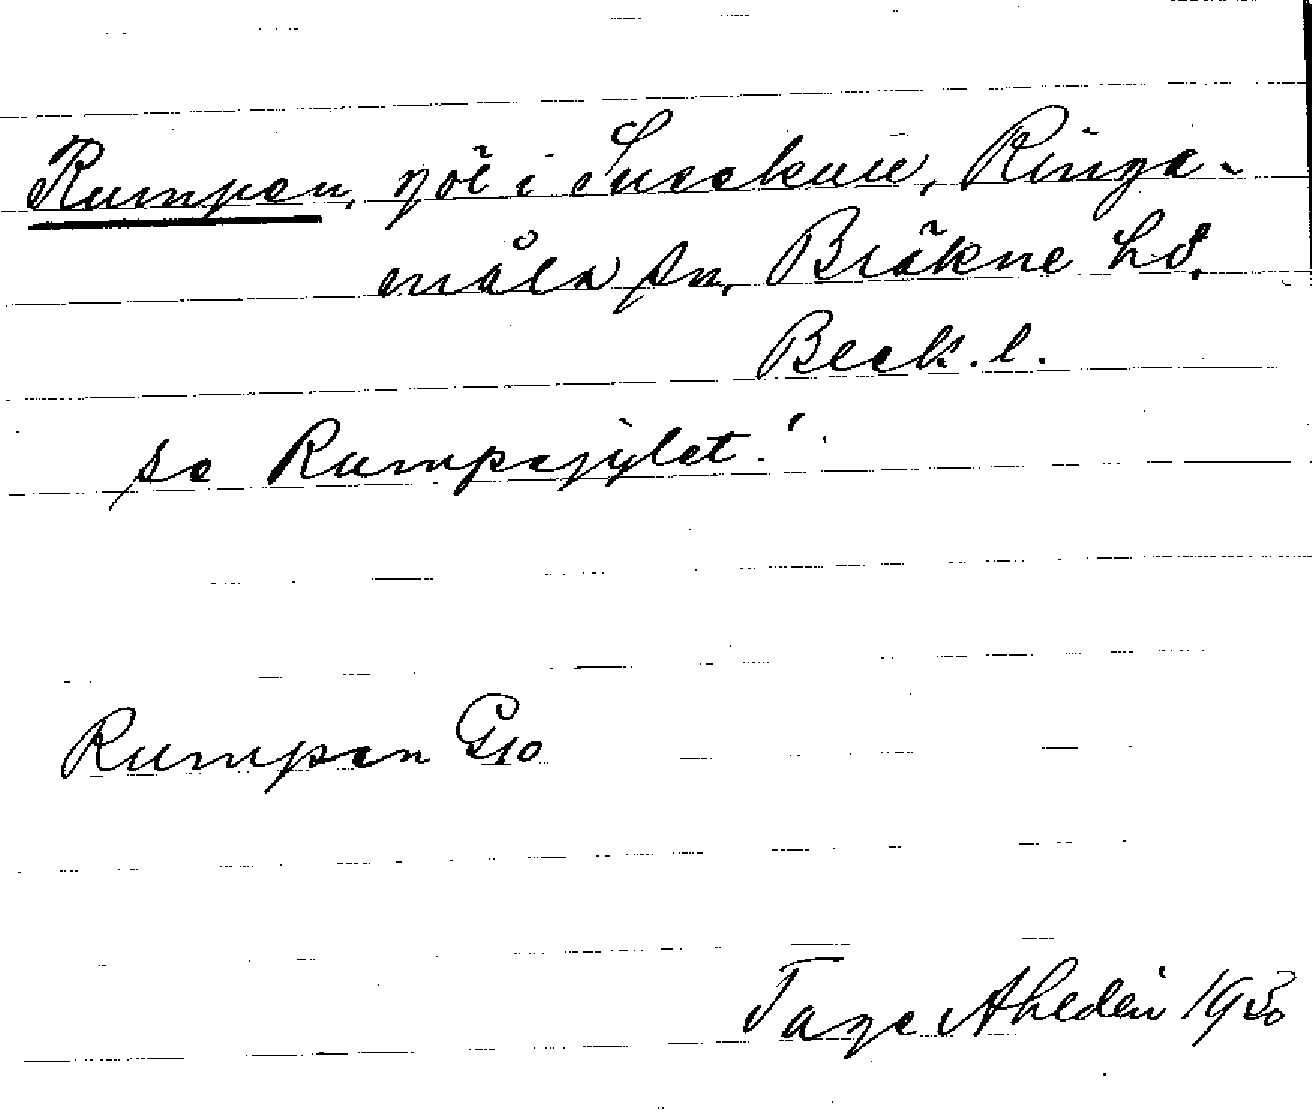 Rumpen, göl i Snaekulle, Ringa-
måla sn, Bräkne hd.
Bleck. l.
se Rumpegylet!
Rumpen Go
Tage Ahldén 1930